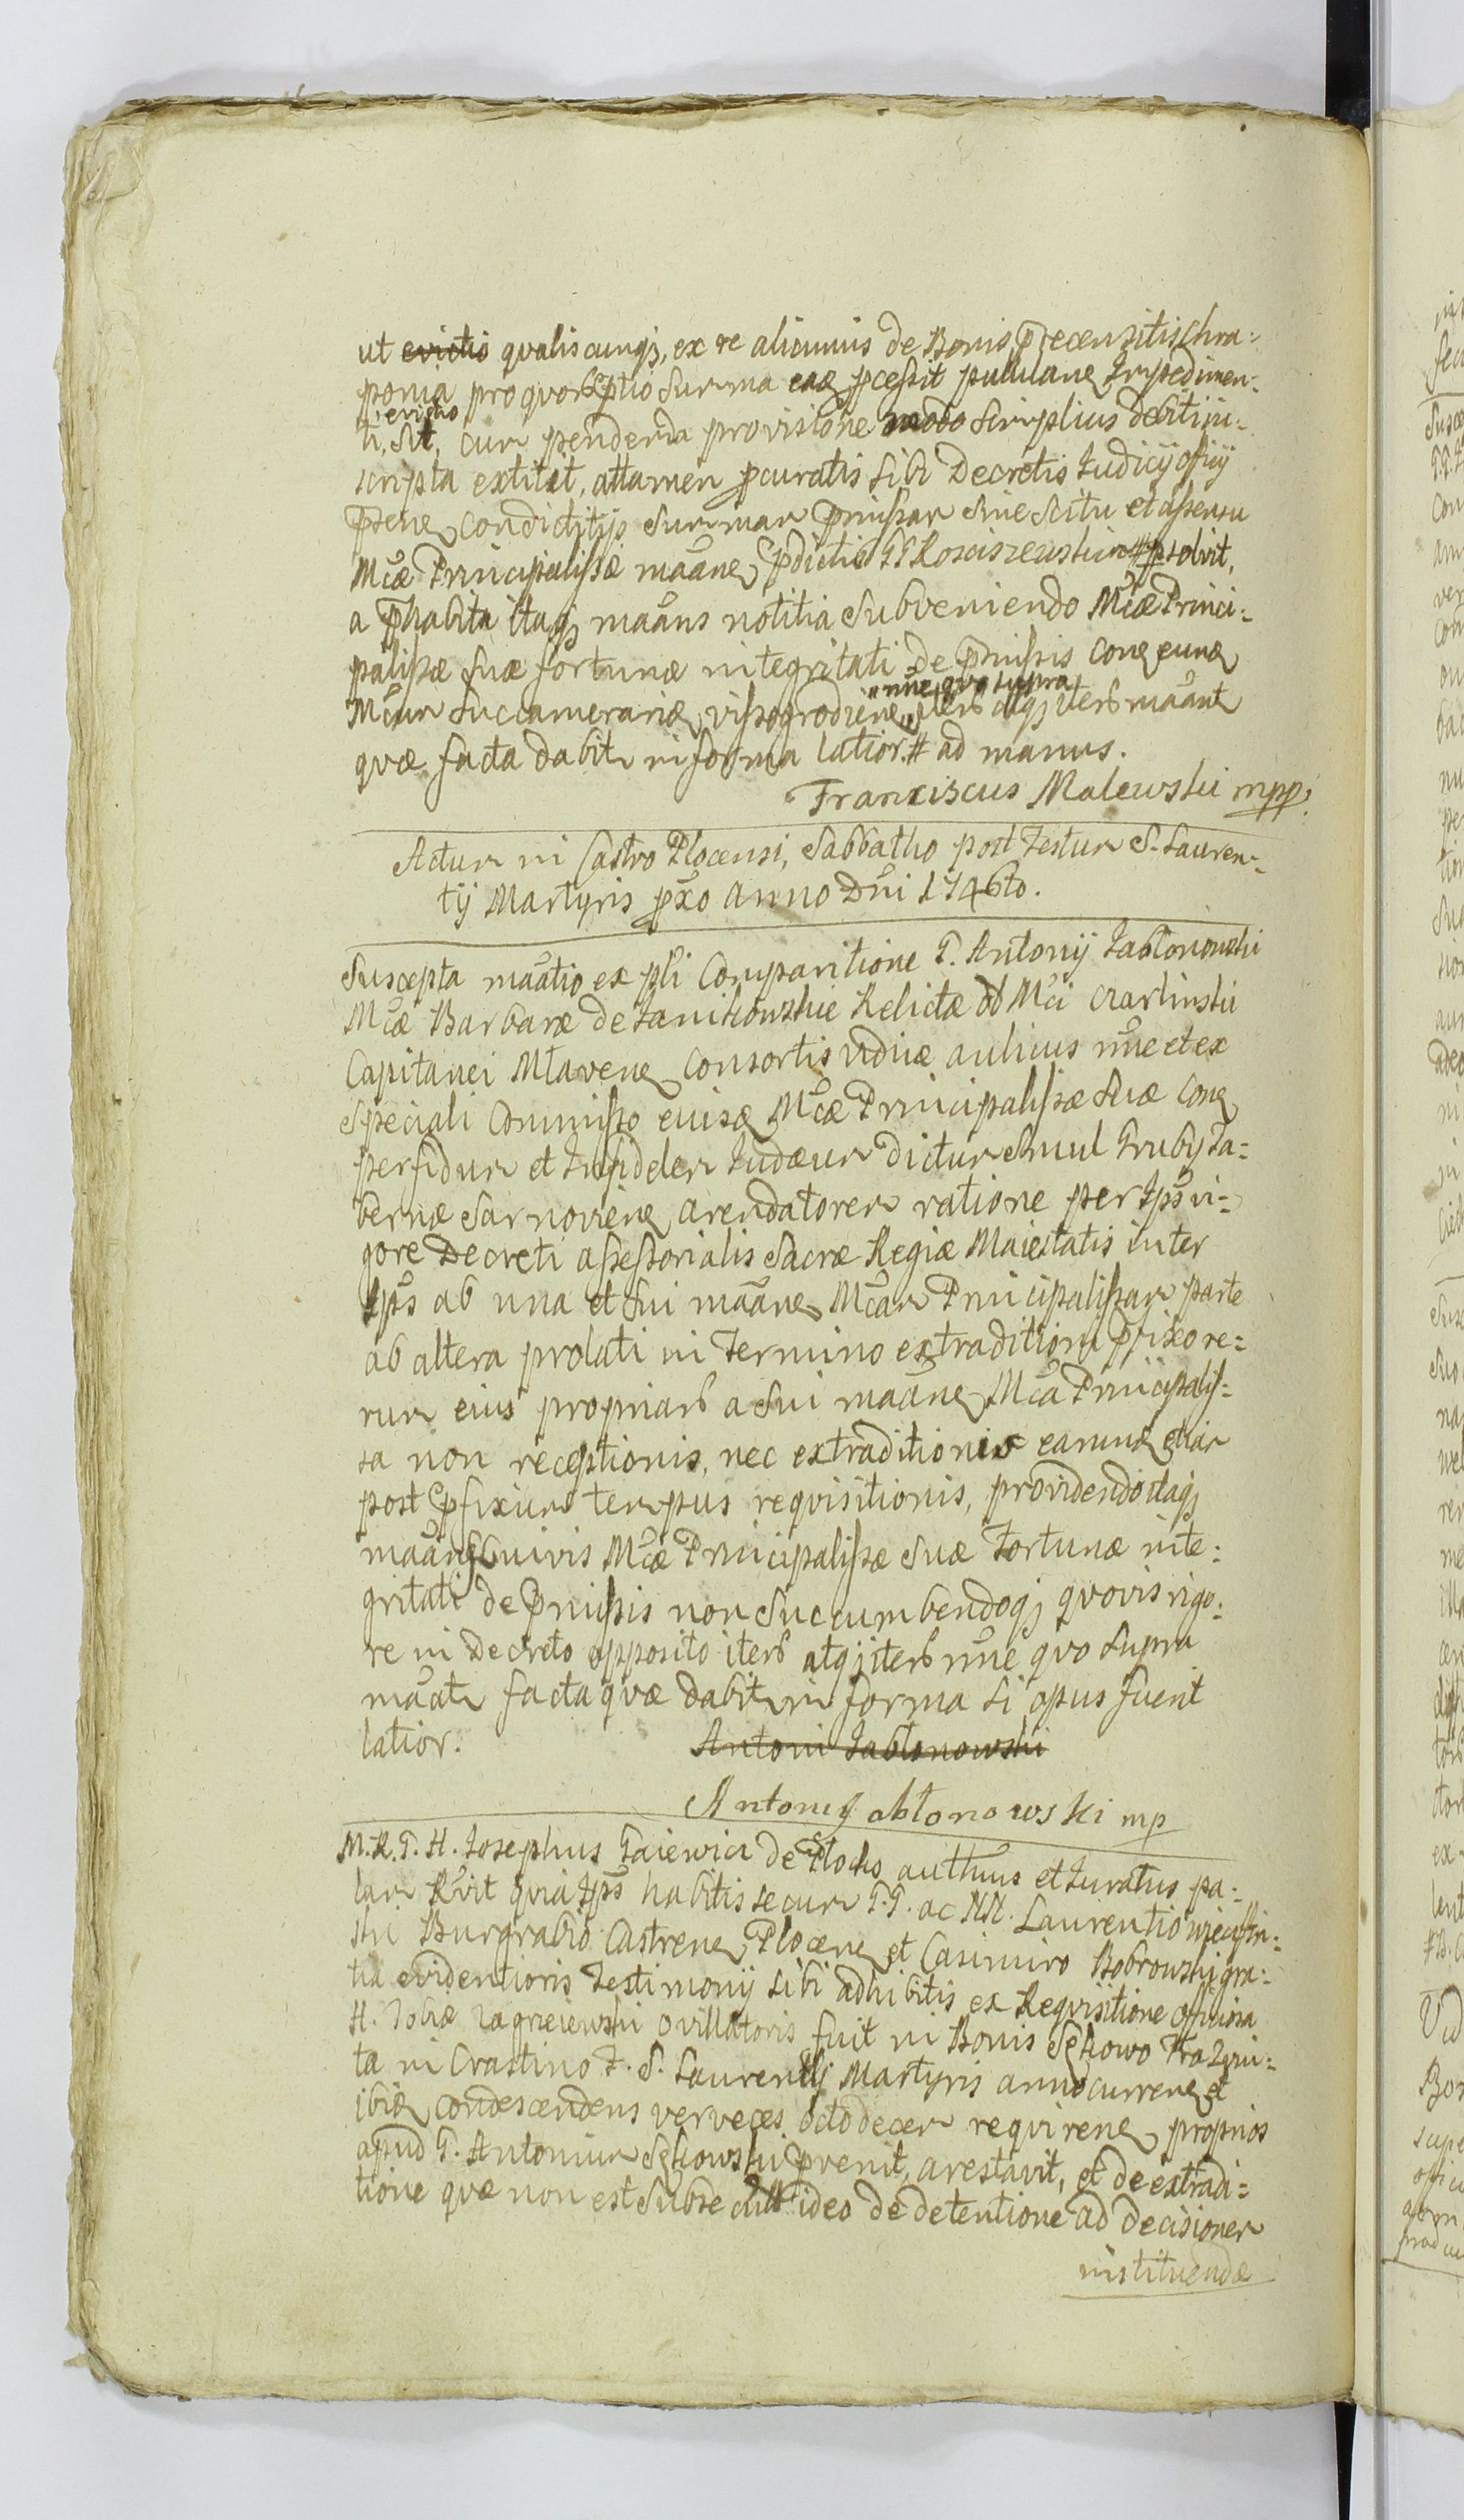 ut evictio qvaliscunq, ex re alicuius de Bonis p̄recensitis Chra-
ponia pro qvor Summa eaq pcessit pullulane Impedimen-
ti, evictio sit, cum pendenda provisione modo simplius debiti in-
scripta extitit, attamen pcuratis sibi Decretis Judicij officij
p̄sene condictitijs Summam p̄missam sine Scitu et assensu
Mcæ Principalissæ maāne p̄dictis GG Kosciszewskim # psolvit,
a p̄habita itaq maāns notitia Subveniendo Mcæ Princi-
palissæ suæ fortunæ integritati de p̄missis cone eune
Mcum Succamerariū vissogrodiene "nne qvo supra" iterū atq iterū maānt
qvæ facta dabit in forma latior. # ad manus.
Franciscus Malewski mpp.
Actum in Castro Plocensi, Sabbatho post Festum S. Lauren-
tij Martyris pxo Anno Dni 1746to.
Suscepta maātio ex pti Comparitione G. Antonij Jabłonowski
Mcæ Barbaræ de Janikowskie Relictæ ol Mci Czarlinski
Capitanei Młavene Consortis viduæ aulicus nne et ex
Speciali Commisso eiusq Mcæ Principalissæ suæ Cone
perfidum et Infidelem Judæum dictum Smul Gruby Ta-
bernæ Sarnoviene arendatorem ratione per Ips vi-
gore Decreti assessorialis Sacræ Regiæ Maiestatis inter
Ips ab una et sui maāne Mcam Principalissam parte
ab altera prolati in Termino extraditioni p̄fixo re-
rum eius propriarū a sui maāne Mca Principalis-
sa non receptionis, nec extraditionis earumq etiam
post p̄fixum tempus reqvisitionis, providendo itaq
maāns cuivis Mcæ Principalissæ suæ Fortunæ inte-
gritati de p̄missis non Succumbendoq qvovis rigo-
re in Decreto apposito iterū atq iterū nne qvo supra
maāt facta qvæ dabit in forma si opus fuerit
latior.
Antoni Jabłonowski
Antoni Jabłonowski mp
M. R. G. H. Josephus Gaiewicz de Płocko authus et Juratus pa-
lam Rvit qvia Ips habitis secum G.G. ac NN. Laurentio
ski Burgrabio Castrene Plocene et Casimiro Bobrowski gra-
tia evidentioris Testimonij sibi adhibitis ex Reqvisitione officiosa
H. Tobiæ Zagrzeiewski ovillatoris fuit in Bonis Sękowo
ta in Crastino F. S. Laurentij Martyris anno currene et
ibiq condescendens verveces octodecem reqvirene proprios
apud G. Antonium Sękowski p̄venit, arestavit, et de extradi-
tione qvæ non est Subsecuta ideo de detentione ad decisionem
instituendæ